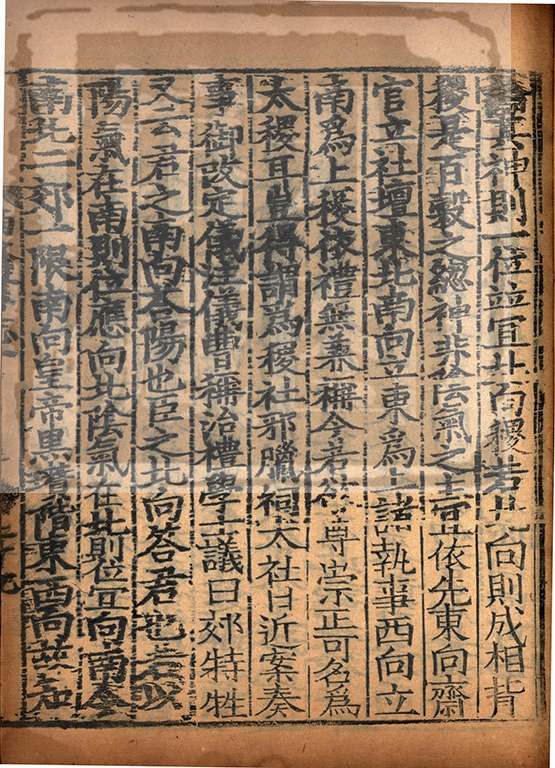 其神則一位並宜北向稷若北向則成相背
稷是百穀之緫神非陰氣之主宜依先東向齋
官立社壇東北南向立東爲上諸執事西向立
南爲上稷依禮無兼稱今若欲尊崇正可名爲
太稷耳豈得謂爲稷社邪臘祠太社日近案奏
事御改定儀注儀曹稱治禮學士議曰郊特牲
又云君之南向荅陽也臣之北向荅君也若以
陽氣在南則位應向北陰氣在北則位宜向南今
南北二郊一限南向皇帝黑瓚階東西向故知